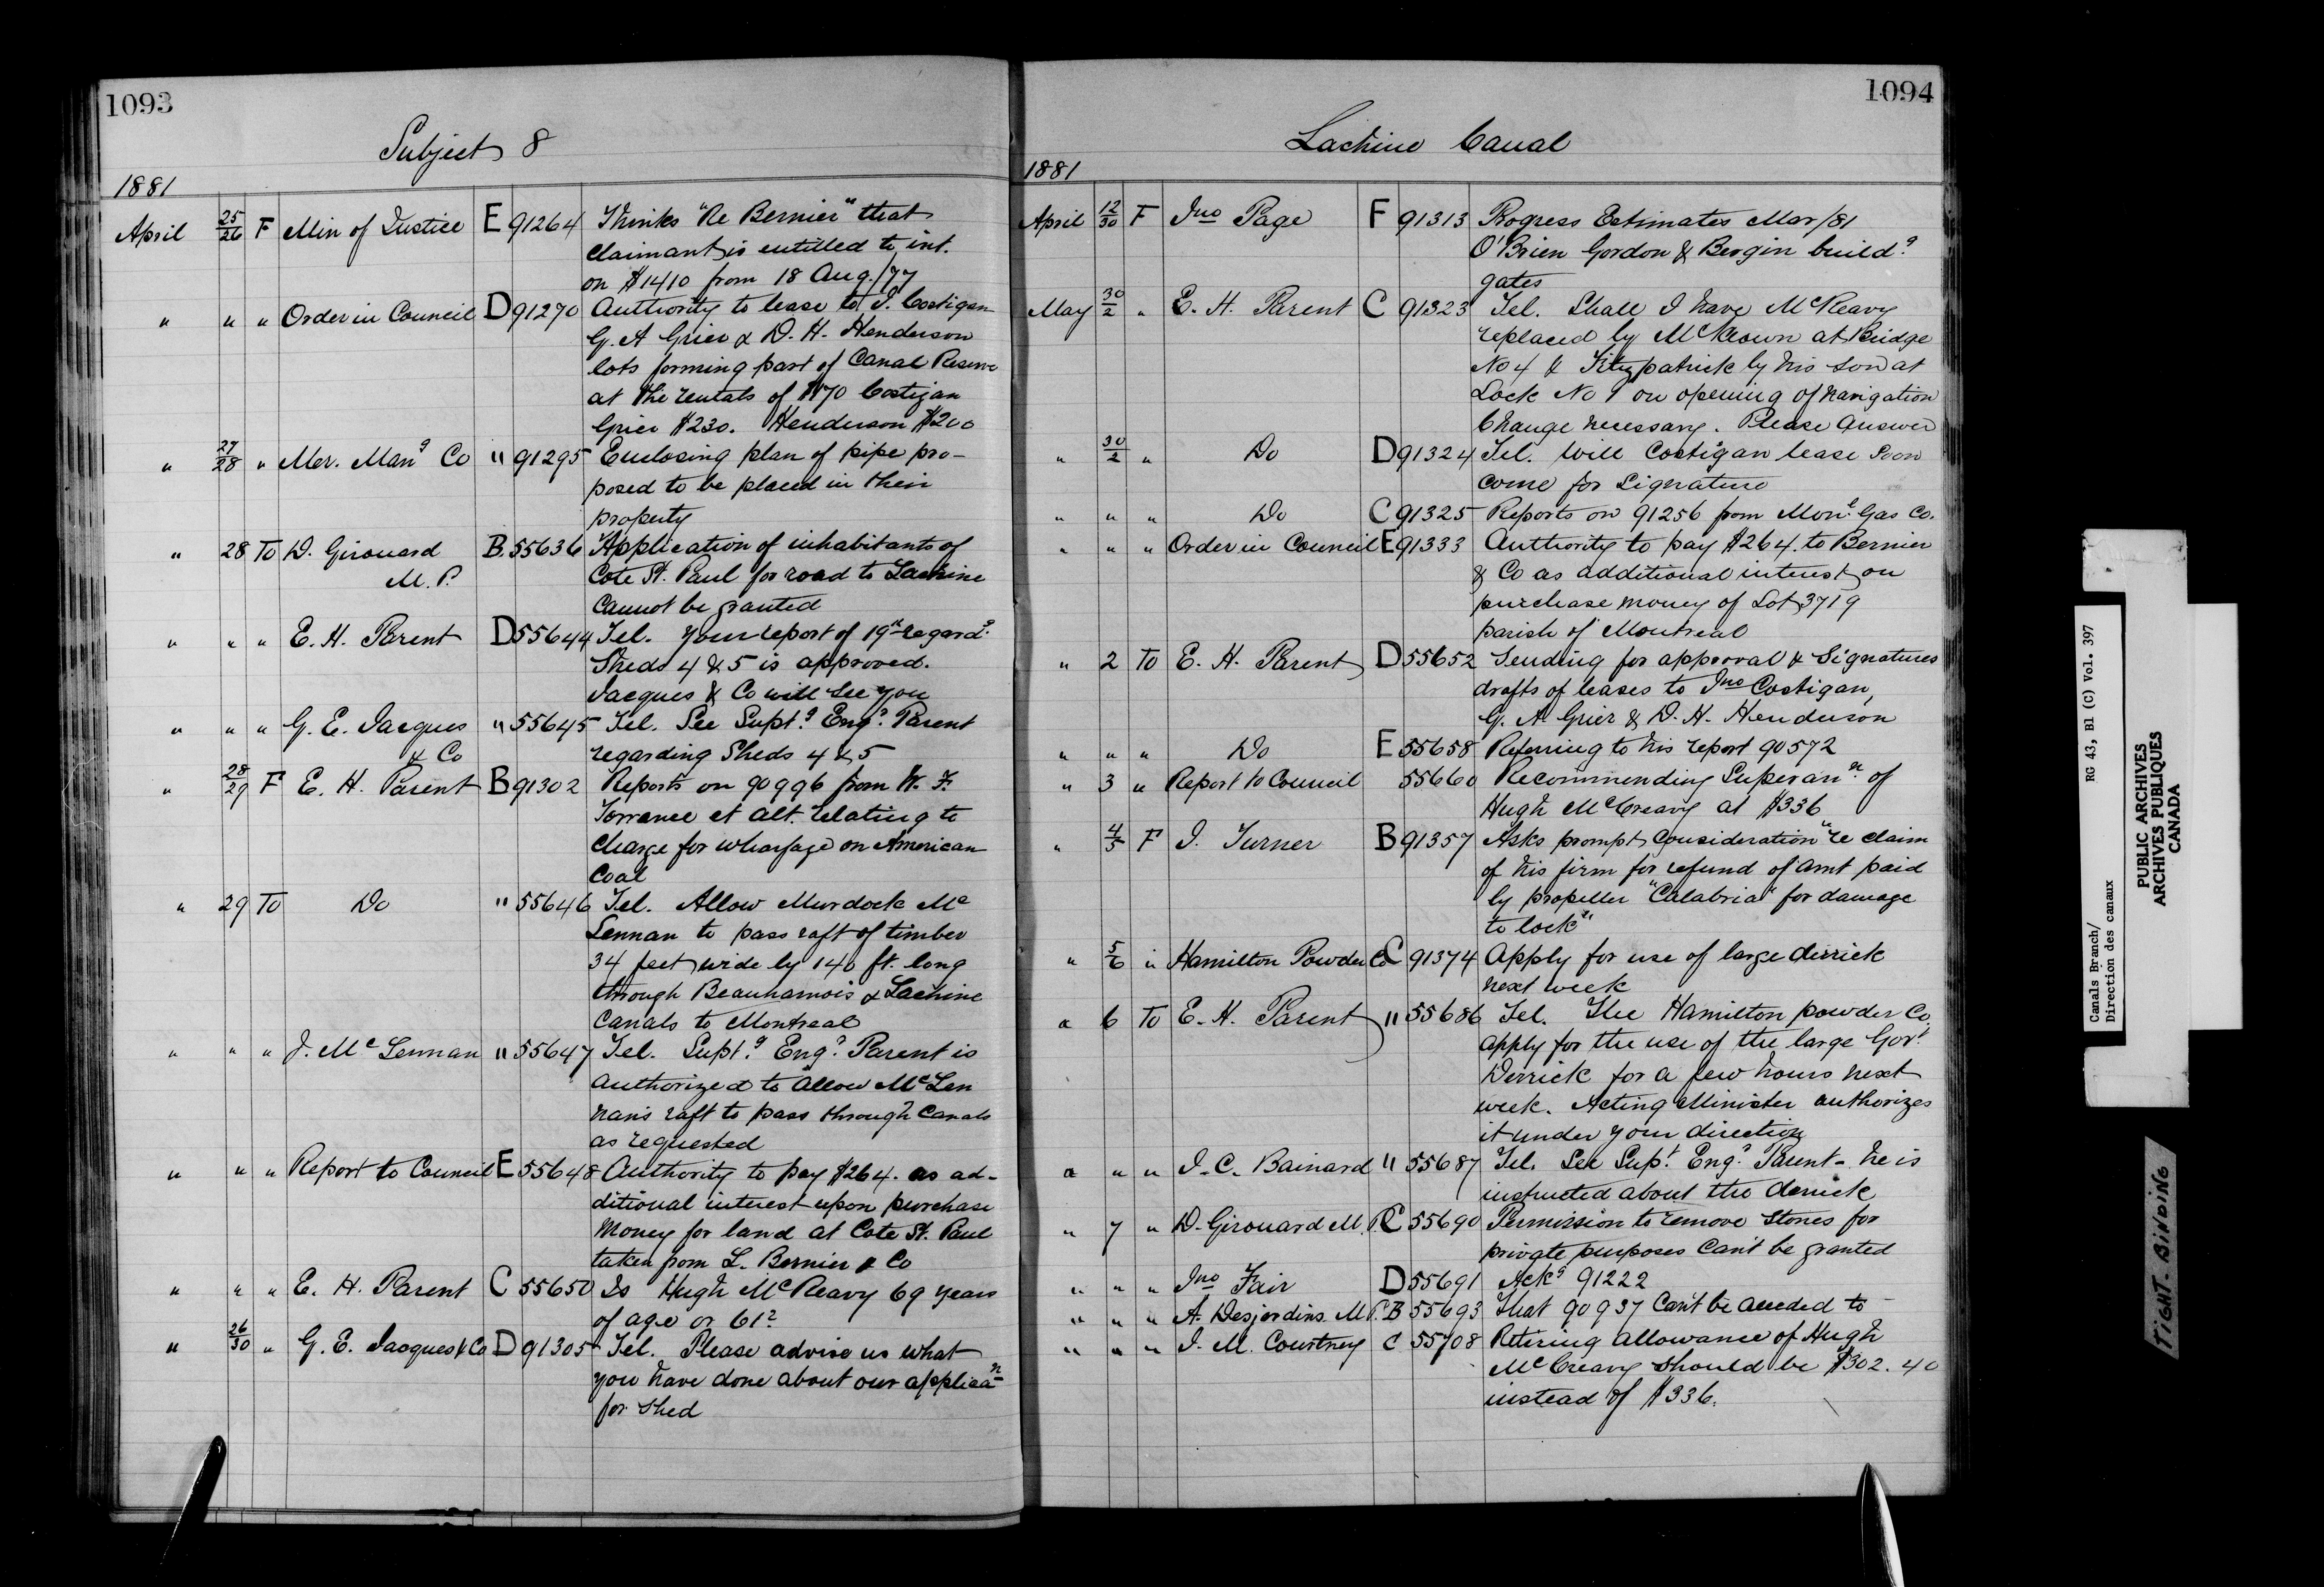 1093
Subject 8
1881
April 25/26 F Min of Justice E 91264 Thinks "Re Bernier" that
claimant is entitled to int.
on $1410 from 18 Aug./77
" " " Order in Council D 91270 Authority to lease to J. Costigan
G. A Grier & D. H. Henderson
lots forming part of Canal Reserve
at the rentals of $170 Costigan
Grier $230. Henderson $200
" 27/28 " Mer. Mang Co " 91295 Enclosing plan of pipe pro-
posed to be placed in their
property
" 28 To D. Girouard B. 55636 Application of inhabitants of
M. P. Cote St. Paul for road to Lachine
cannot be granted
" " " E. H. Parent D 55644 Tel. Your report of 19th regardg
Sheds 4 & 5 is approved.
Jacques & Co will see you
" " " G. E. Jacques " 55645 Tel. See Suptg Engr Parent
& Co regarding Sheds 4 & 5
" 28/29 F E. H. Parent B 91302 Reports on 90996 from W. F.
Torrance et alt. relating to
charge for wharfage on American
Coal
" 29 To Do " 55646 Tel. Allow Murdock Mc
Lennan to pass raft of timber
34 feet wide by 140 ft. long
through Beauharnois & Lachine
Canals to Montreal
" " " J. McLennan " 55647 Tel. Suptg Engr Parent is
authorized to allow McLen
nan's raft to pass through Canals
as requested
" " " Report to Council E 55648 Authority to pay $264. as ad-
ditional interest upon purchase
money for land at Cote St. Paul
taken from L. Bernier & Co
" " " E. H. Parent C 55650 Is Hugh McReavy 69 years
of age or 61?
" 26/30 " G. E. Jacques & Co D 91305 Tel. Please advise us what
you have done about our applican
for shed
1094
Lachine Canal
1881
April 12/30 F Jno Page F 91313 Progress Estimates Mar/81
O'Brien Gordon & Bergin buildg
gates
May 30/2 " E. H. Parent C 91323 Tel. Shall I have McReavy
replaced by McKeown at Bridge
No 4 & Fitzpatrick by his son at
Lock No 1 on opening of navigation
Change necessary. Please Answer
" 30/2 " Do D 91324 Tel. Will Costigan lease soon
come for signature
" " " Do C 91325 Reports on 91256 from Monl Gas Co.
" " " Order in Council E 91333 Authority to pay $264. to Bernier
& Co as additional interest on
purchase money of Lot 3719
parish of Montreal
" 2 To E. H. Parent D 55652 Sending for approval & signatures
drafts of leases to Jno Costigan,
G. A. Grier & D. H. Henderson
" " " Do E 55658 Referring to his report 90572
" 3 " Report to Council 55660 Recommending Superann of
Hugh McCreavy at $336
" 4/5 F J. Turner B 91357 Asks prompt consideration "re claim
of his firm for refund of amt paid
by propeller "Calabria" for damage
to lock"
" 5/6 " Hamilton Powder Co C 91374 Apply for use of large derrick
next week
" 6 To E. H. Parent " 55686 Tel. The Hamilton powder Co
apply for the use of the large Govt
Derrick for a few hours next
week. Acting Minister authorizes
it under your direction
" " " J. C. Bainard " 55687 Tel. See Supt Engr Parent - he is
instructed about the derrick
" 7 " D. Girouard M. P. C 55690 Permission to remove stones for
private purposes can't be granted
" " " Jno Fair D 55691 Ackg 91222
" " " A. Desjardins M P. B 55693 That 90937 can't be acceded to
" " " J. M. Courtney C 55708 Retiring allowance of Hugh
McCreavy should be $302.40
instead of $336.
Canals Branch/ RG 43, B1 (C) Vol. 397
Direction des canaux
PUBLIC ARCHIVES
ARCHIVES PUBLIQUES
CANADA
TIGHT BINDING